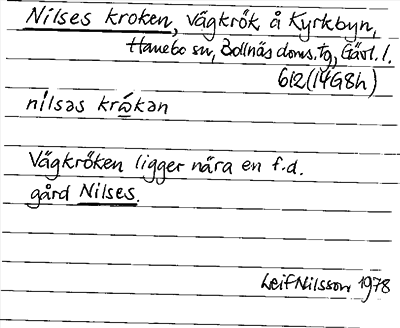 Nilses kroken, vägkrök å Kyrkbyn,
Hanebo sn, Bollnäs doms. tg, Gävl. l.
612 (14G8h)
nilsəs krὰkən
Vägkröken ligger nära en f.d.
gård Nilses.
Leif Nilsson 1978